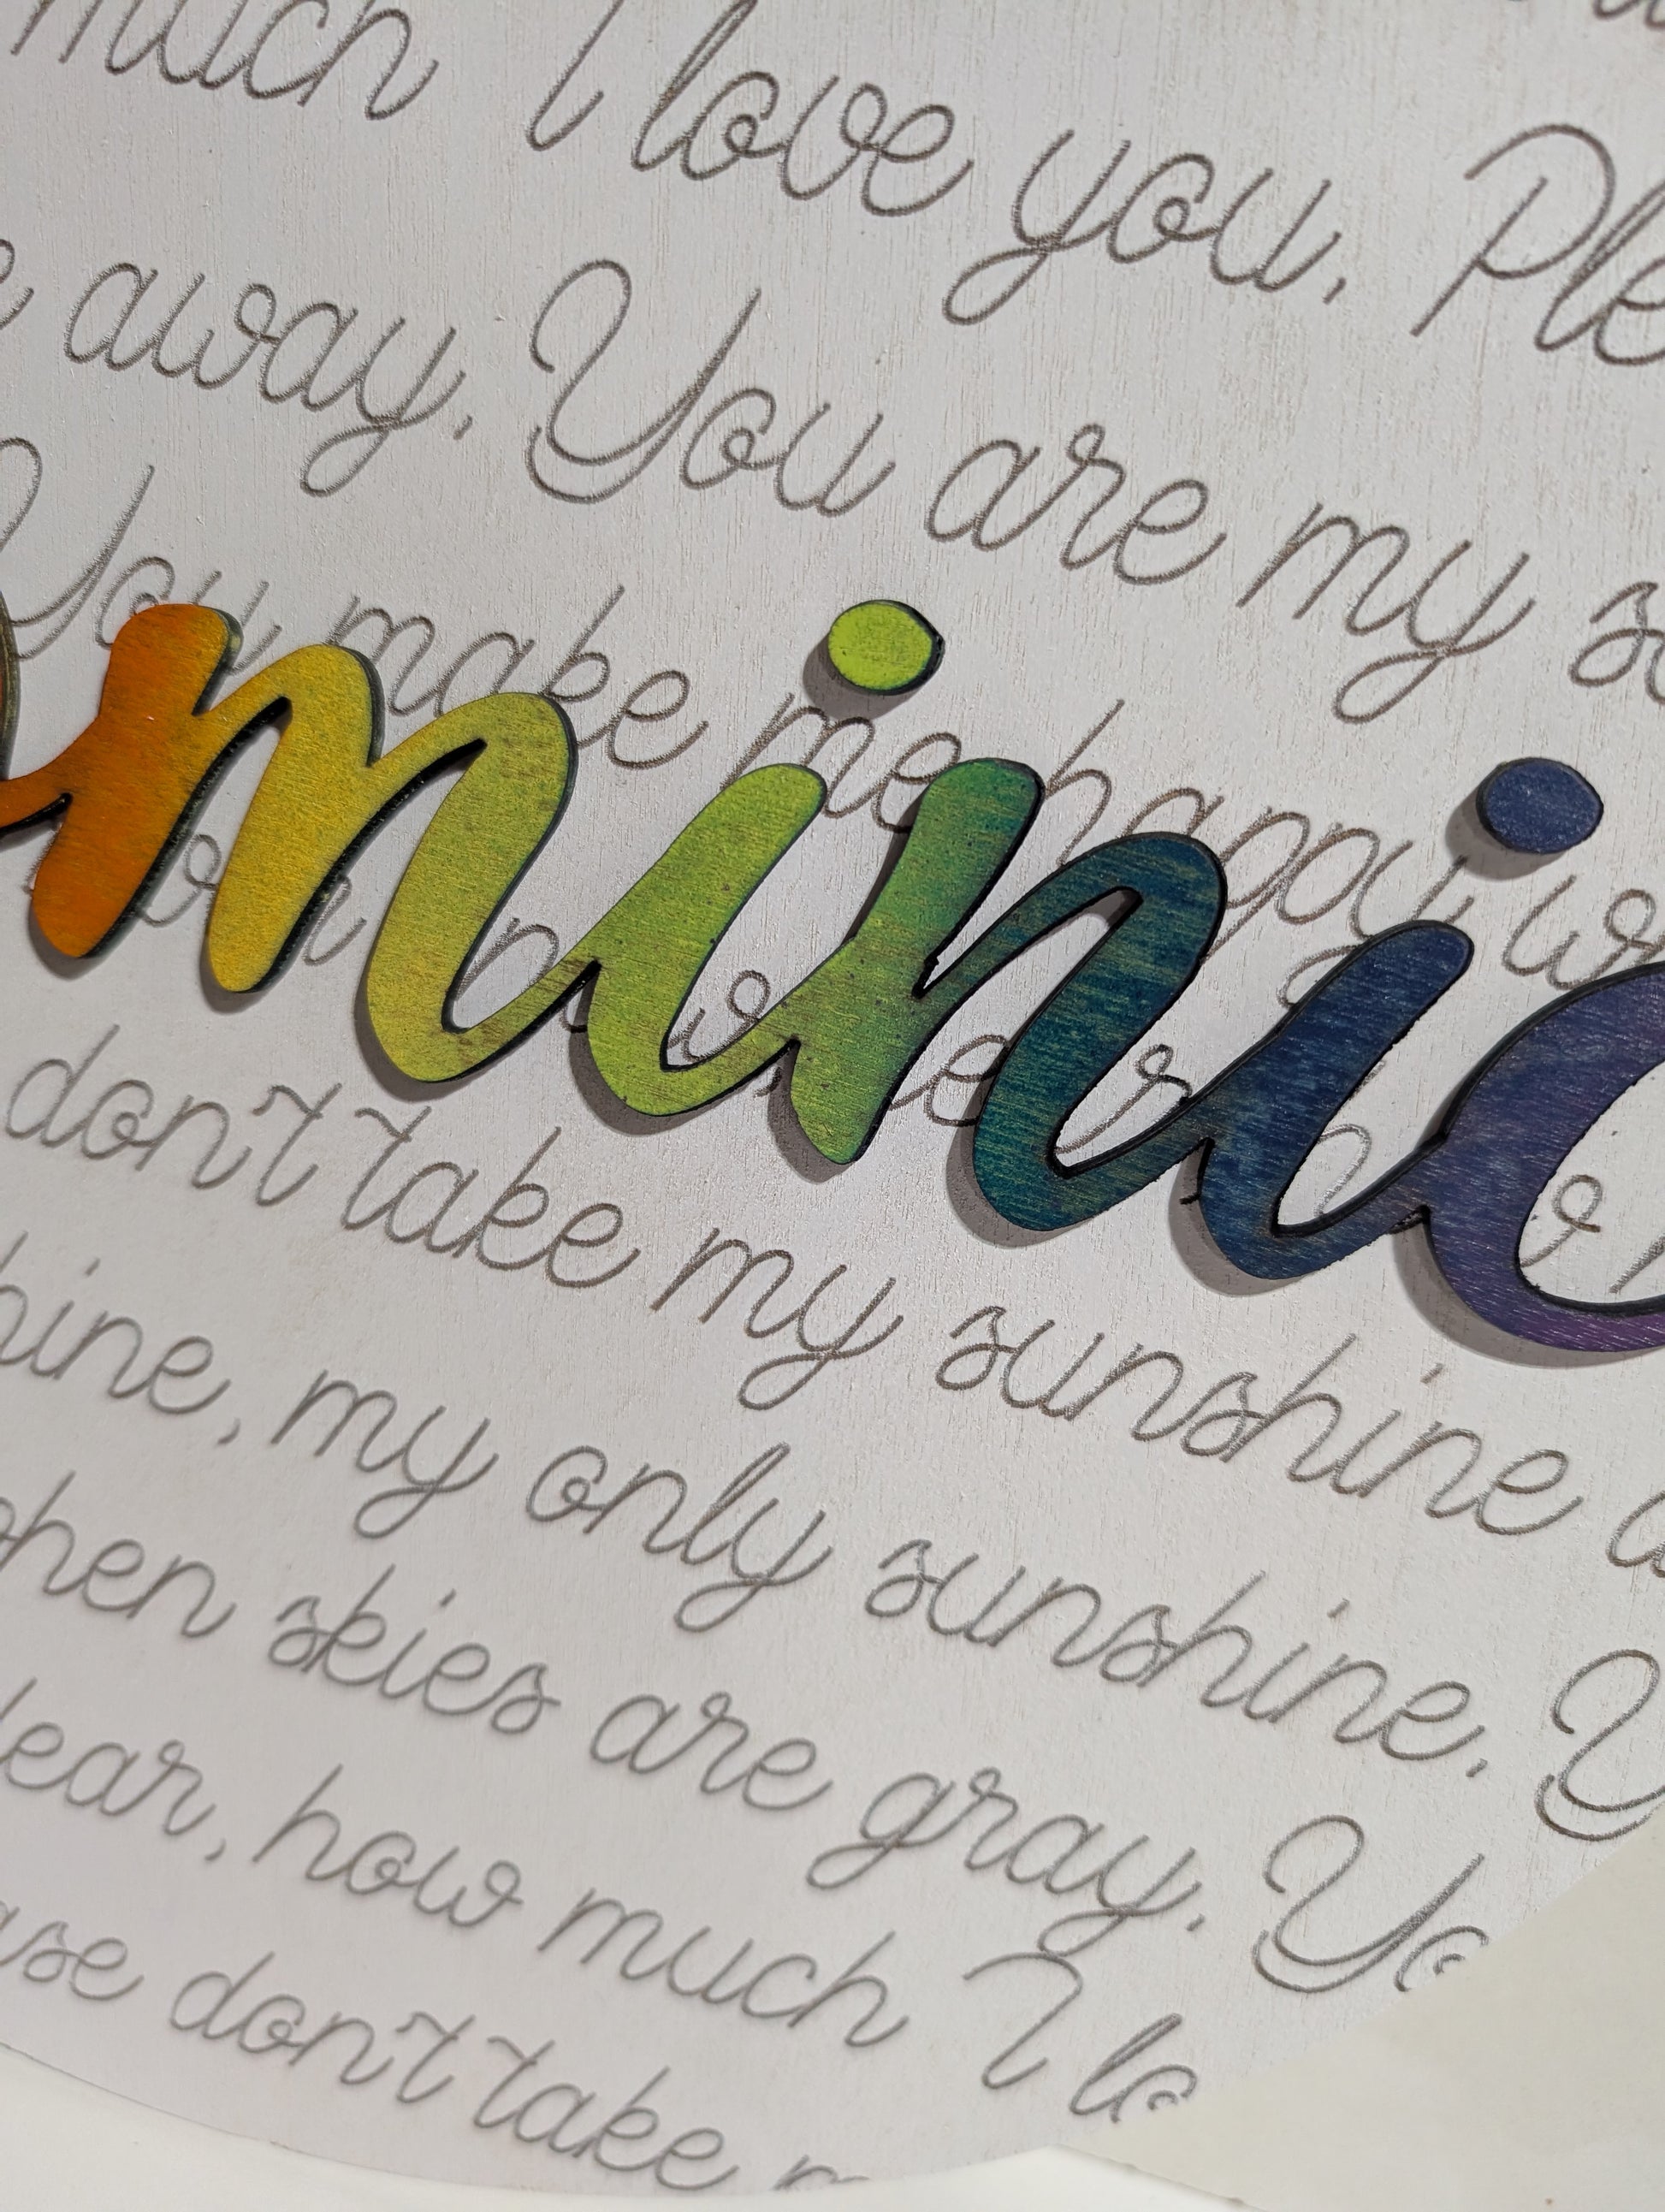 much I love you. Ple
e away. You are my s
You make me happy w
ominic
don't take my sunshine a
hine, my only sunshine. Y
hen skies are gray. Yo
dear, how much I lo
ase don't take m